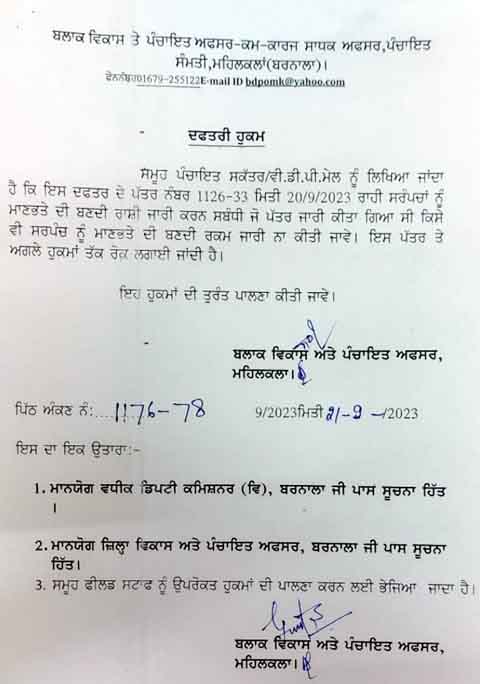 ਬਲਾਕ ਵਿਕਾਸ ਤੇ ਪੰਚਾਇਤ ਅਫਸਰ-ਕਮ-ਕਾਰਜ ਸਾਧਕ ਅਫਸਰ,ਪੰਚਾਇਤ
ਸੰਮਤੀ,ਮਹਿਲਕਲਾਂ(ਬਰਨਾਲਾ)।
ਫੋਨਨੰਬਰ01679-255122E-mail ID bdpomk@yahoo.com
ਦਫਤਰੀ ਹੁਕਮ
ਸਮੂਹ ਪੰਚਾਇਤ ਸਕੱਤਰ/ਵੀ.ਡੀ.ਪੀ.ਮੇਲ ਨੂੰ ਲਿਖਿਆ ਜਾਂਦਾ
ਹੈ ਕਿ ਇਸ ਦਫਤਰ ਦੇ ਪੱਤਰ ਨੰਬਰ 1126-33 ਮਿਤੀ 20/9/2023 ਰਾਹੀ ਸਰੰਪਚਾਂ ਨੂੰ
ਮਾਣਭਤੇ ਦੀ ਬਣਦੀ ਰਾਸ਼ੀ ਜਾਰੀ ਕਰਨ ਸਬੰਧੀ ਜੋ ਪੱਤਰ ਜਾਰੀ ਕੀਤਾ ਗਿਆ ਸੀ ਕਿਸੇ
ਵੀ ਸਰਪੰਚ ਨੂੰ ਮਾਣਭਤੇ ਦੀ ਬਣਦੀ ਰਕਮ ਜਾਰੀ ਨਾ ਕੀਤੀ ਜਾਵੇ। ਇਸ ਪੱਤਰ ਤੇ
ਅਗਲੇ ਹੁਕਮਾਂ ਤੱਕ ਰੋਕ ਲਗਾਈ ਜਾਂਦੀ ਹੈ।
ਇਹ ਹੁਕਮਾਂ ਦੀ ਤੁਰੰਤ ਪਾਲਣਾ ਕੀਤੀ ਜਾਵੇ।
ਬਲਾਕ ਵਿਕਾਸ ਅਤੇ ਪੰਚਾਇਤ ਅਫਸਰ,
ਮਹਿਲਕਲਾ।
ਪਿੱਠ ਅੰਕਣ ਨੰ:....1176-78 9/2023ਮਿਤੀ 21-9-/2023
ਇਸ ਦਾ ਇਕ ਉਤਾਰਾ:-
1. ਮਾਨਯੋਗ ਵਧੀਕ ਡਿਪਟੀ ਕਮਿਸ਼ਨਰ (ਵਿ), ਬਰਨਾਲਾ ਜੀ ਪਾਸ ਸੂਚਨਾ ਹਿੱਤ
।
2. ਮਾਨਯੋਗ ਜ਼ਿਲ੍ਹਾ ਵਿਕਾਸ ਅਤੇ ਪੰਚਾਇਤ ਅਫਸਰ, ਬਰਨਾਲਾ ਜੀ ਪਾਸ ਸੂਚਨਾ
ਹਿੱਤ।
3. ਸਮੂਹ ਫੀਲਡ ਸਟਾਫ ਨੂੰ ਉਪਰੋਕਤ ਹੁਕਮਾਂ ਦੀ ਪਾਲਣਾ ਕਰਨ ਲਈ ਭੇਜਿਆ ਜਾਦਾ ਹੈ।
ਬਲਾਕ ਵਿਕਾਸ ਅਤੇ ਪੰਚਾਇਤ ਅਫਸਰ,
ਮਹਿਲਕਲਾ।